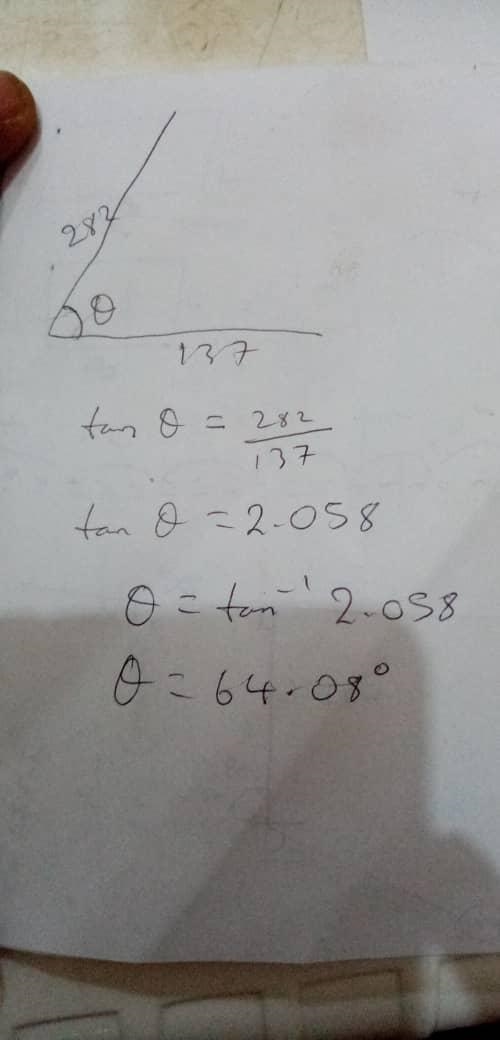 282
θ
137
tan θ = 282/137
tan θ = 2.058
θ = tan⁻¹ 2.058
θ = 64.08°